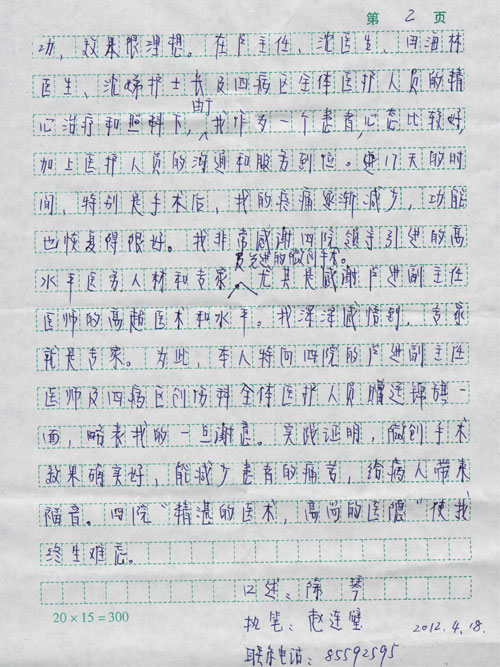 第 2 页
功，效果很理想。在卢主任、沈医生、田海林
医生、沈娣护士长及四病区全体医护人员的精
心治疗和照料下，由于我作为一个患者，心态比较好，
加上医护人员的沟通和服务到位。17天的时
间，特别是手术后，我的疼痛逐渐减少，功能
也恢复得很好。我非常感谢四院领导引进的高
水平医务人材和专家更先进的微创手术。尤其是感谢卢进副主任
医师的高超医术和水平。我深深感悟到，专家
就是专家。为此，本人特向四院的卢进副主任
医师及四病区创伤科全体医护人员赠送锦旗一
面，略表我的一点谢意。实践证明，微创手术
效果确实好，能减少患者的痛苦，给病人带来
福音。四院“精湛的医术，高尚的医德”使我
终生难忘。
口述：陈琴
20×15=300
执笔：赵连璧 2012.4.18.
联系电话：85592595